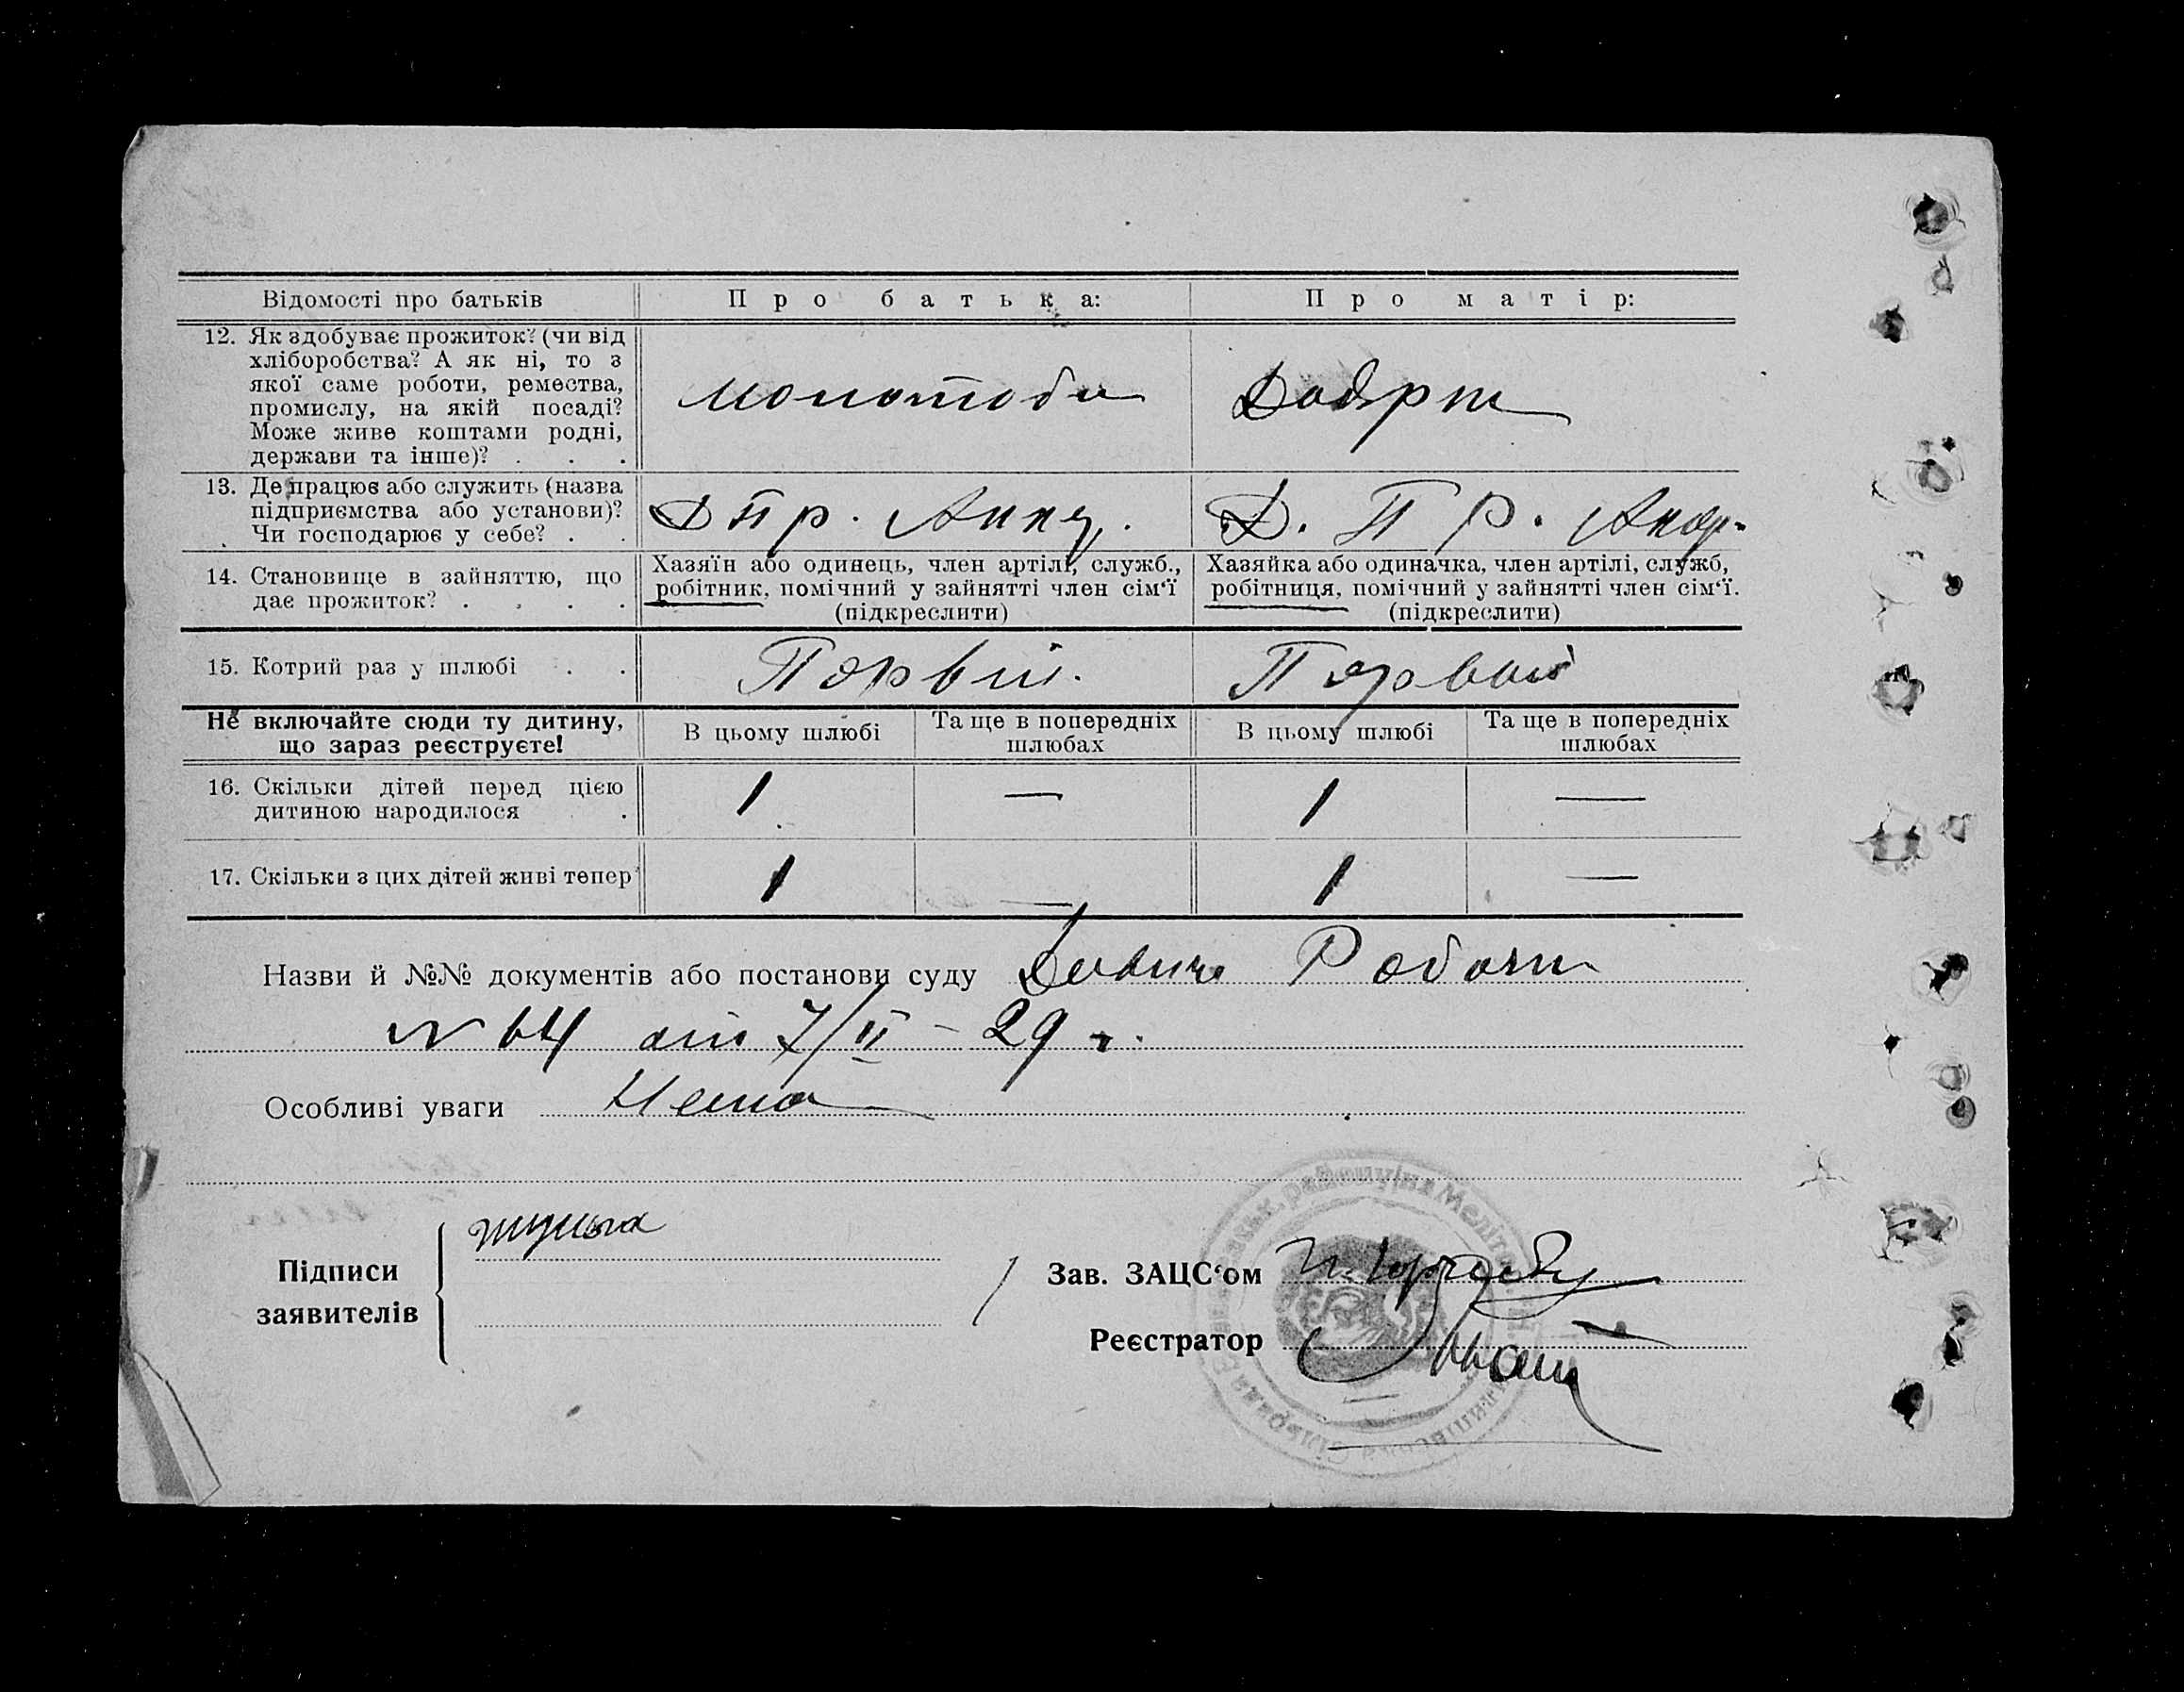 Відомості про батьків
Про батька:
Про матір:
12. Як здобуває прожиток? (чи від
хліборобства? А як ні, то з
якої саме роботи, ремества,
промислу, на якій посаді?
Може живе коштами родні,
держави та інше)? . . .
13. Де працює або служить (назва
підприємства або установи)?
Чи господарює у себе? . .
Д. П Р.
14. Становище в зайняттю, що
дає прожиток? . . . .
Хазяїн або одинець, член артілі, служб.,
робітник, помічний у зайнятті член сім'ї
(підкреслити)
Хазяйка або одиначка, член артілі, служб,
робітниця, помічний у зайнятті член сім'ї.
(підкреслити)
15. Котрий раз у шлюбі . .
Не включайте сюди ту дитину,
що зараз реєструєте!
В цьому шлюбі
Та ще в попередніх
шлюбах
В цьому шлюбі
Та ще в попередніх
шлюбах
16. Скільки дітей перед цією
дитиною народилося .
1 — 1 —
17. Скільки з цих дітей живі тепер
1 — 1 —
Назви й №№ документів або постанови суду
N 64 от 7/II - 29 г.
Особливі уваги
Підписи
заявителів
Зав. ЗАЦС'ом
Реєстратор